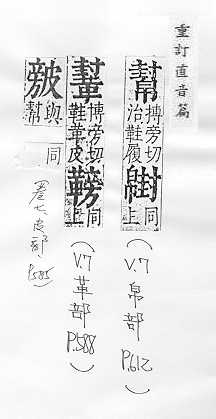 重訂直音篇
幚 搏旁切
治鞋履
同上
(V.7 帛部 P.612)
鞤 搏旁切
鞋革皮
同上
(V.7 革部 P.588)
與幚
同
卷七 皮部 P.585)